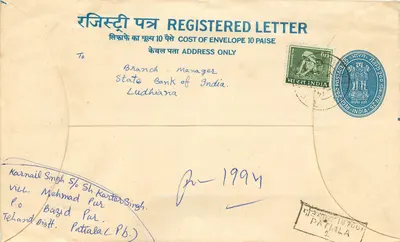 रजिस्ट्री पत्र REGISTERED LETTER
लिफाफे का मूल्य 10 पैसे COST OF ENVELOPE 10 PAISE
केवल पता ADDRESS ONLY
To
Branch Manager
State Bank of India
Ludhiana
भारत INDIA
Karnail Singh S/o Sh. Kartar Singh.
Vill. Mehmad Pur
P.o Bazid Pur.
Teh and Distt. Patiala (Pb.)
1994
PATIALA